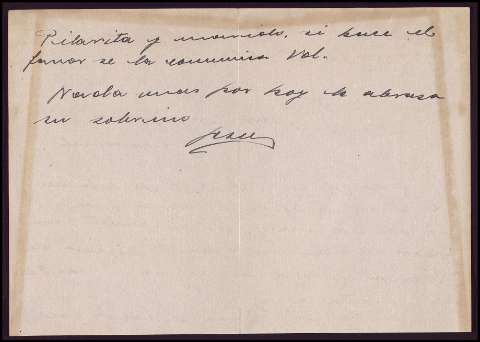 Pilarita y marido, si hace el
favor se la comunica Vd.
Nada mas por hoy le abraza
su sobrino